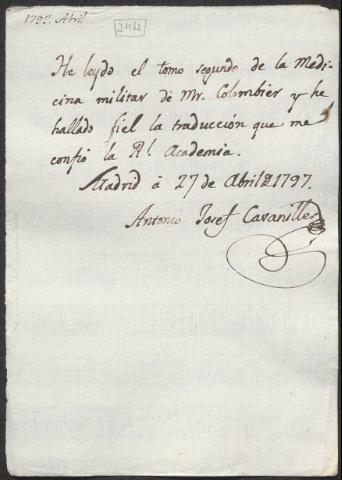 1797. Abril
244
He leydo el tomo segundo de la Medi-
cina militar de Mr. Colombier y he
hallado fiel la traducción que me
confió la Rl. Academia.
Madrid á 27 de Abril de 1797.
Antonio Josef Cavanilles